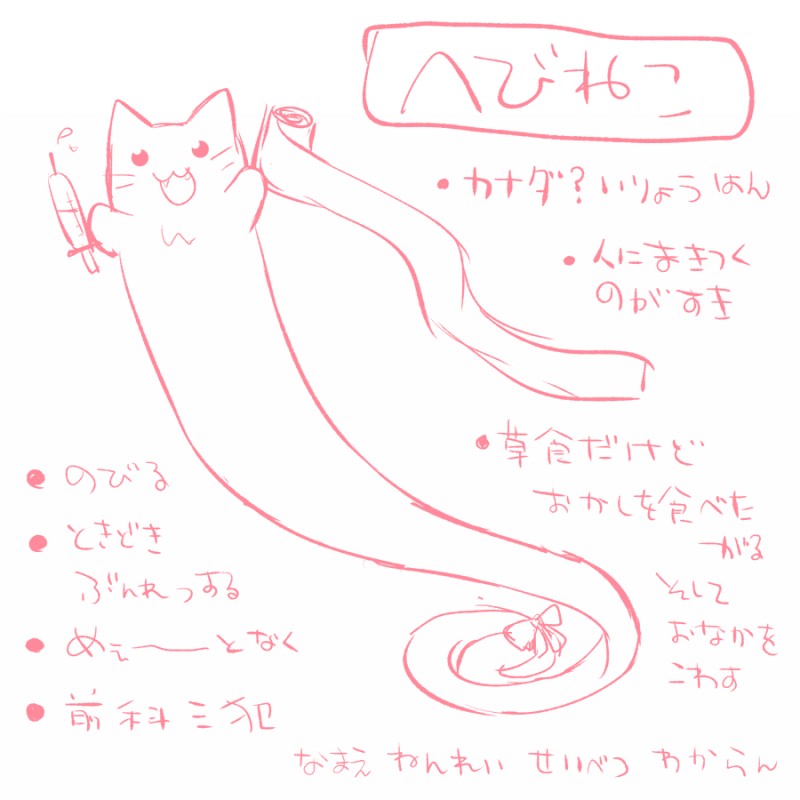 へびねこ
カナダ?いりょうはん
人にまきつく
のがすき
草食だけど
おかしを食べた
がる
そして
おなかを
こわす
のびる
ときどき
ぶんれつする
めぇ〜となく
前科三犯
なまえ ねんれい せいべつ わからん